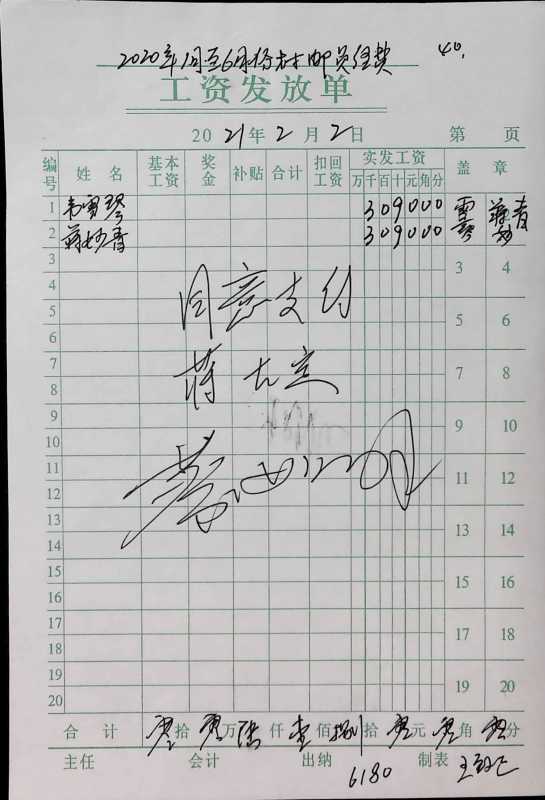 2020年1月至6月份村邮员经费 40.
工资发放单
2021年2月2日 第 页
编号 姓名 基本工资 奖金 补贴 合计 扣回工资 实发工资 盖 章
万 千 百 十 元 角 分
1 韦雪琴 309000 雪琴
2 蒋妙青 309000 蒋妙青
3 3 4
4
5 同意支付 5 6
6
7 蒋 7 8
8
9 9 10
10
11 11 12
12
13 13 14
14
15 15 16
16
17 17 18
18
19 19 20
20
合计 零拾零万陆仟壹佰捌拾零元零角零分
主任 会计 出纳 6180 制表 王